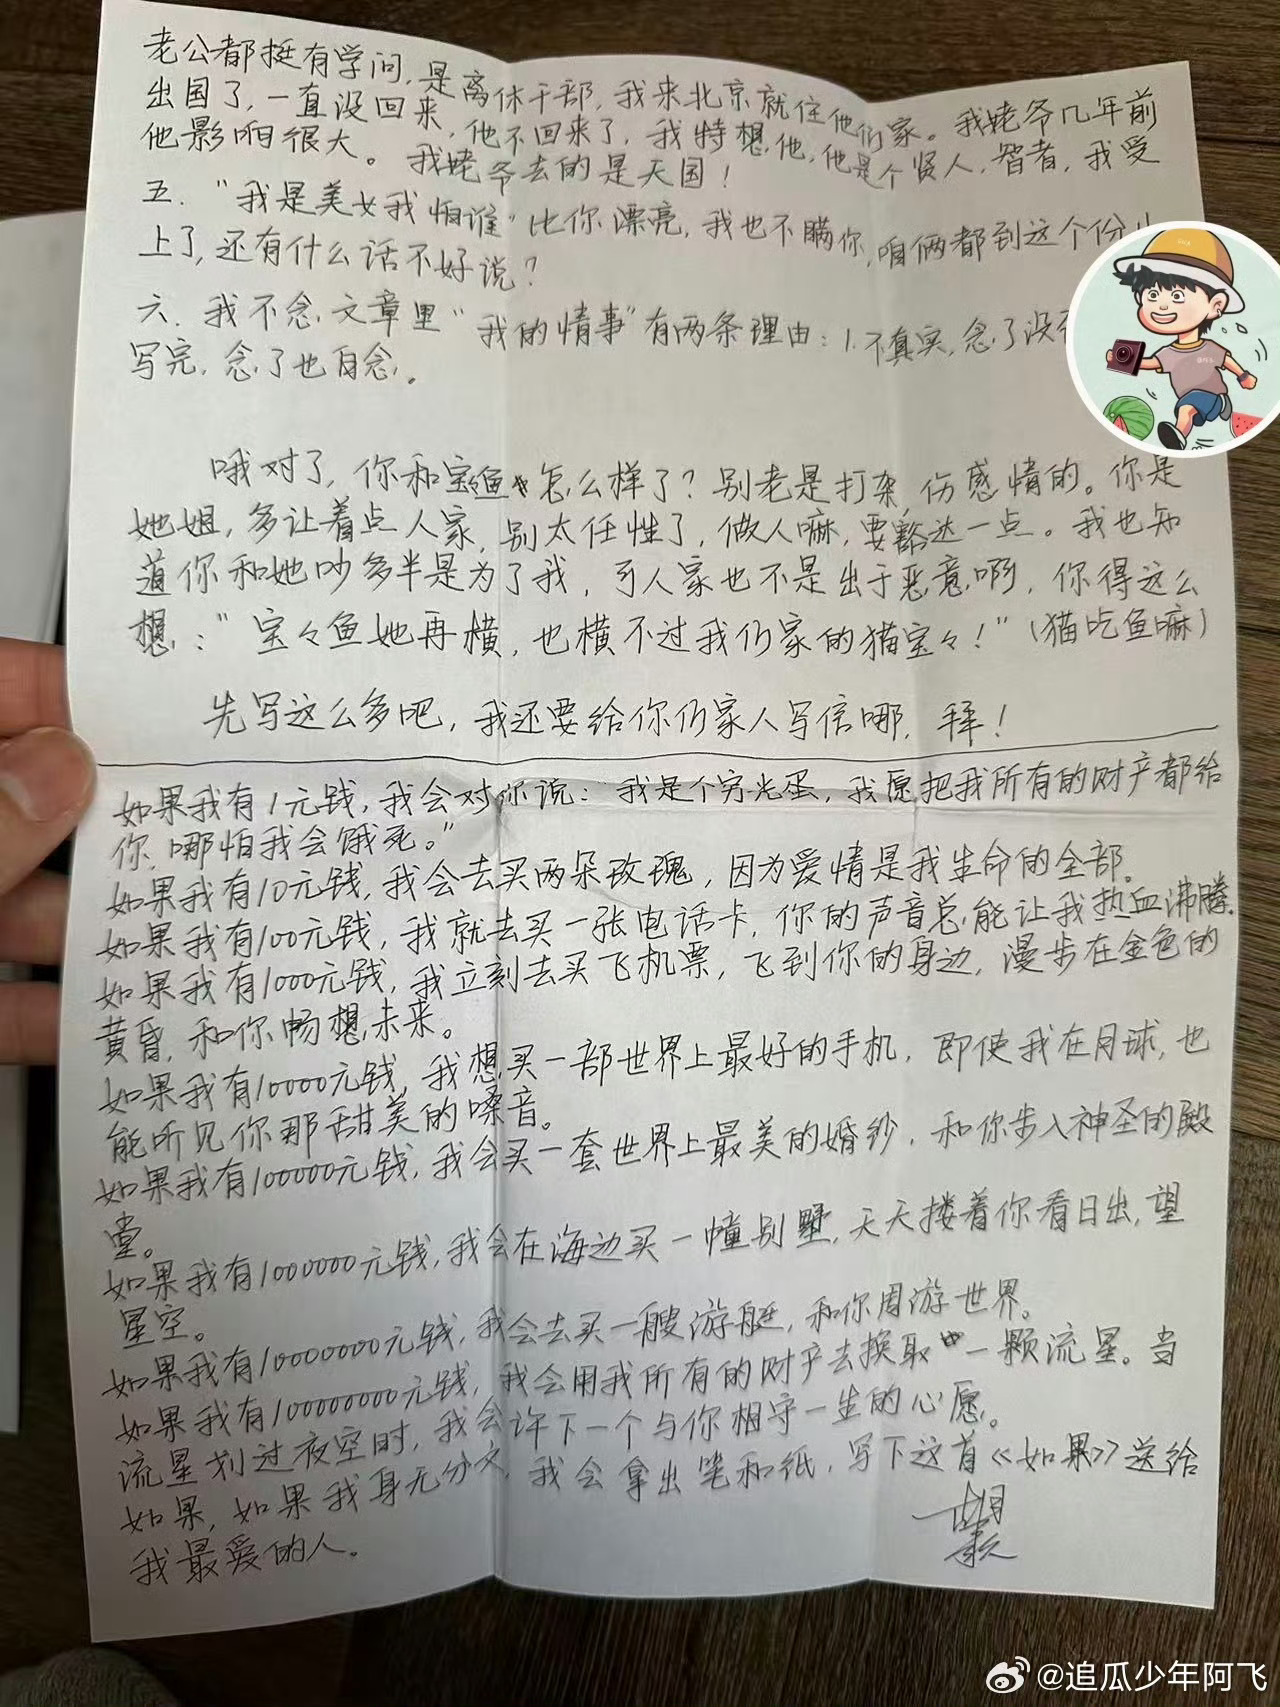 老公都挺有学问,是离休干部,我来北京就住他们家。我姥爷几年前
出国了,一直没回来,他不回来了,我特想他,他是个贤人,智者,我受
他影响很大。我姥爷去的是天国!
五."我是美女我怕谁"比你漂亮,我也不瞒你,咱俩都到这个份儿
上了,还有什么话不好说?
六.我不念文章里"我的情事"有两条理由:1.不真实,念了没
写完,念了也白念。
哦对了,你和宝鱼怎么样了?别老是打架,伤感情的。你是
她姐,多让着点人家,别太任性了,做人嘛,要豁达一点。我也知
道你和她吵多半是为了我,可人家也不是出于恶意啊,你得这么
想:"宝々鱼她再横,也横不过我们家的猫宝々!"(猫吃鱼嘛)
先写这么多吧,我还要给你们家人写信哪,拜!
如果我有1元钱,我会对你说:我是个穷光蛋,我愿把我所有的财产都给
你,哪怕我会饿死。"
如果我有10元钱,我会去买两朵玫瑰,因为爱情是我生命的全部。
如果我有100元钱,我就去买一张电话卡,你的声音总能让我热血沸腾。
如果我有1000元钱,我立刻去买飞机票,飞到你的身边,漫步在金色的
黄昏,和你畅想未来。
如果我有10000元钱,我想买一部世界上最好的手机,即使我在月球,也
能听见你那甜美的嗓音。
如果我有100000元钱,我会买一套世界上最美的婚纱,和你步入神圣的殿
堂。
如果我有1000000元钱,我会在海边买一幢别墅,天天搂着你看日出,望
星空。
如果我有10000000元钱,我会去买一艘游艇,和你周游世界。
如果我有100000000元钱,我会用我所有的财产去换取一颗流星。当
流星划过夜空时,我会许下一个与你相守一生的心愿。
如果,如果我身无分文,我会拿出笔和纸,写下这首《如果》送给
我最爱的人。
@追瓜少年阿飞